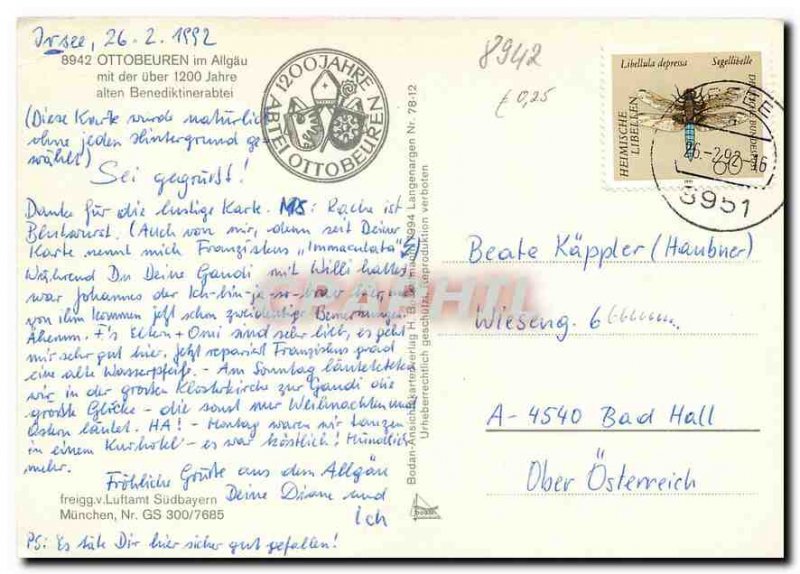 Irsee, 26.2.1992
8942 OTTOBEUREN im Allgäu
mit der über 1200 Jahre
alten Benediktinerabtei
(Diese Karte wurde natürlich
ohne jeden Hintergrund ge-
wählt)
Sei gegrüßt!
Danke für die lustige Karte. MS: Rache ist
Blutwurst. (Auch von mir, denn seit Deiner
Karte nennt mich Franziskus "Immaculata")
Während Du Deine Gaudi mit Willi hattest,
war Johannes der Ich-bin-ja-so-brav hier und
von ihm kommen jetzt schon zweideutige Bemerkungen.
Ähemm. F's Eltern + Omi sind sehr lieb, es geht
mir sehr gut hier. Jetzt repariert Franziskus grad
eine alte Wasserpfeife. - Am Sonntag läuteten
wir in der großen Klosterkirche zur Gaudi die
größte Glocke - die sonst nur Weihnachten und
Ostern läutet. HA! - Montag waren wir tanzen
in einem Kurhotel - es war köstlich! Mündlich
mehr.
Fröhliche Grüße aus dem Allgäu
Deine Diane und
ich
freigg.v.Luftamt Südbayern
München, Nr. GS 300/7685
PS: Es täte Dir hier sicher gut gefallen!
1200 JAHRE
ABTEI OTTOBEUREN
Bodan-Ansichtskartenverlag H. 7994 Langenargen Nr. 78-12
Urheberrechtlich geschützt. Reproduktion verboten
bodan
8942
€ 0,25
Libellula depressa Segellibelle
HEIMISCHE
LIBELLEN
DEUTSCHE BUNDESPOST
60
26.-2.92-16
8951
Beate Käppler (Haubner)
Wieseng. 6
A-4540 Bad Hall
Ober Österreich
CPAPHIL